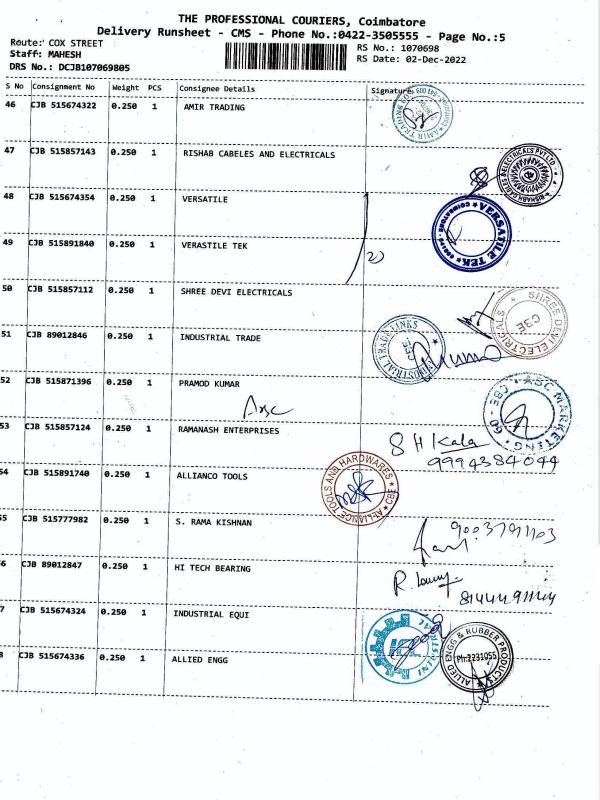 THE PROFESSIONAL COURIERS, Coimbatore
Delivery Runsheet - CMS - Phone No.:0422-3505555 - Page No.:5
Route: COX STREET
RS No.: 1070698
Staff: MAHESH
RS Date: 02-Dec-2022
DRS No.: DCJB107069805
S No Consignment No Weight PCS Consignee Details Signature
46 CJB 515674322 0.250 1 AMIR TRADING
47 CJB 515857143 0.250 1 RISHAB CABELES AND ELECTRICALS
48 CJB 515674354 0.250 1 VERSATILE
VERSATILE TEK
49 CJB 515891840 0.250 1 VERASTILE TEK
50 CJB 515857112 0.250 1 SHREE DEVI ELECTRICALS
SHREE DEVI ELECTRICALS
C3E
51 CJB 89012846 0.250 1 INDUSTRIAL TRADE
INDUSTRIAL TRADE LINKS
52 CJB 515871396 0.250 1 PRAMOD KUMAR
53 CJB 515857124 0.250 1 RAMANASH ENTERPRISES
S H Kala
9994384044
54 CJB 515891740 0.250 1 ALLIANCO TOOLS
ALLIANCE TOOLS AND HARDWARES
55 CJB 515777982 0.250 1 S. RAMA KISHNAN
6 CJB 89012847 0.250 1 HI TECH BEARING
7 CJB 515674324 0.250 1 INDUSTRIAL EQUI
8 CJB 515674336 0.250 1 ALLIED ENGG
ALLIED ENGG & RUBBER PRODUCTS
Ph:2231055